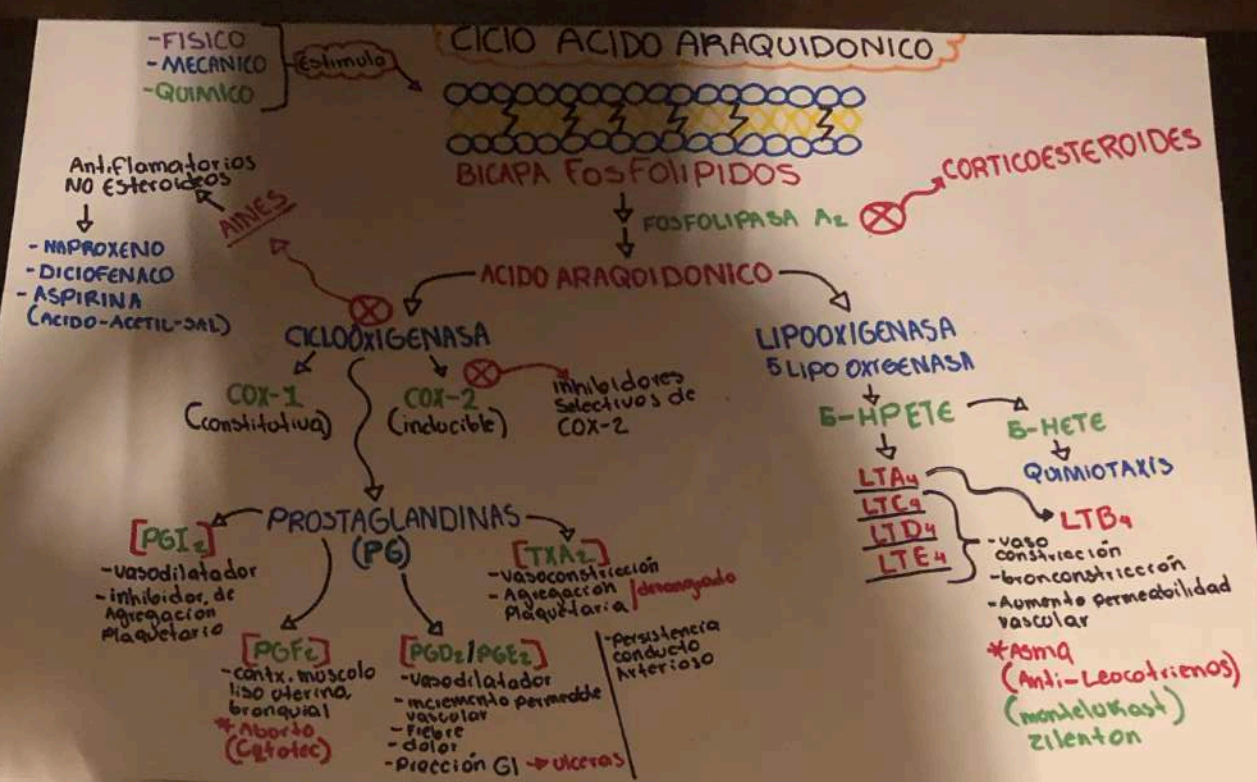 -FISICO
-MECANICO
-QUIMICO
Estimulo
CICLO ACIDO ARAQUIDONICO
BICAPA FOSFOLIPIDOS
FOSFOLIPASA A2
CORTICOESTEROIDES
Antiflamatorios
NO Esteroideos
AINES
- NAPROXENO
- DICIOFENACO
- ASPIRINA
(ACIDO-ACETIL-SAL)
ACIDO ARAQUIDONICO
CICLOOXIGENASA
COX-1
(constitutiva)
COX-2
(inducible)
inhibidores
Selectivos de
COX-2
LIPOOXIGENASA
5 LIPO OXIGENASA
5-HPETE
5-HETE
QUIMIOTAXIS
LTA4
LTC4
LTD4
LTE4
LTB4
-vaso
constricción
-bronconstricción
-Aumento permeabilidad
vascular
*Asma
(Anti-Leocotrienos)
(montelukast)
zilenton
PROSTAGLANDINAS
(PG)
[PGI2]
-vasodilatador
-inhibidor de
Agregación
Plaquetario
[TXA2]
-vasoconstricción
- Agregación
Plaquetaria
[PGF2]
-contx. musculo
liso uterina,
bronquial
*Aborto
(Cytotec)
[PGD2/PGE2]
-vasodilatador
-incremento permeable
vascular
-Fiebre
-dolor
-Protección GI → ulceras
-Persistencia
conducto
Arterioso